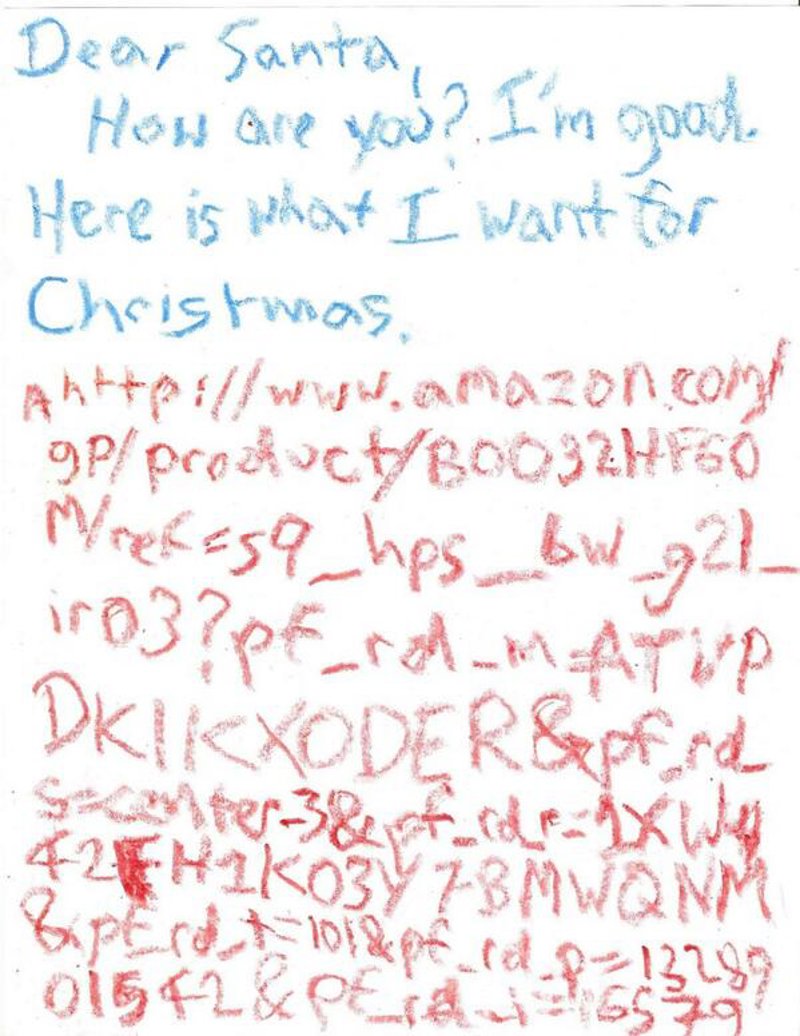 Dear Santa,
How are you? I'm good.
Here is what I want for
Christmas.
Ahttp://www.amazon.com/
gp/product/B0032HF60
M/ref=s9_hps_bw_g21_
ir03?pf_rd_m=ATVP
DKIKXODER&pf_rd_
s=center-3&pf_rd_r=1XWY
42FH1K03Y7BMWQNM
&pf_rd_t=101&pf_rd_p=13289
01542&pf_rd_i=165579